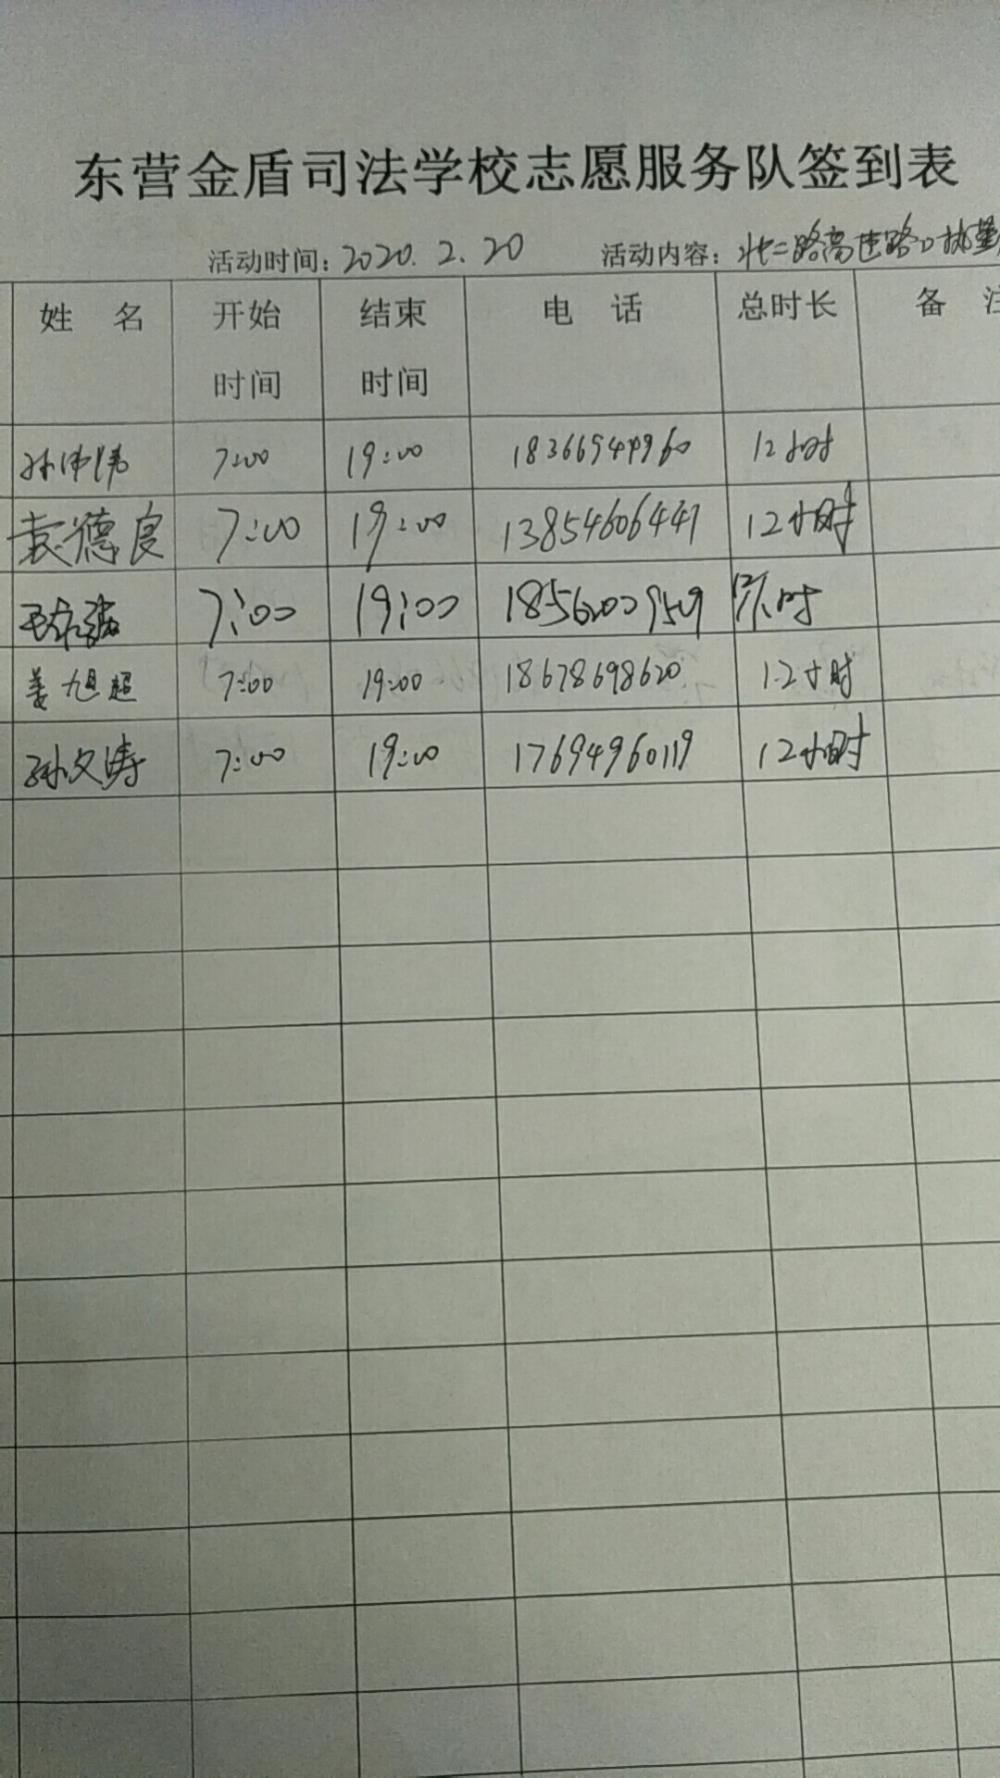 东营金盾司法学校志愿服务队签到表
活动时间：2020.2.20 活动内容：北二路高速路口执勤
姓 名 开始时间 结束时间 电 话 总时长 备 注
孙伟伟 7:00 19:00 18366944960 12小时
袁德良 7:00 19:00 13854606441 12小时
7:00 19:00 12小时
姜旭超 7:00 19:00 18678698620 12小时
孙文涛 7:00 19:00 17694960119 12小时